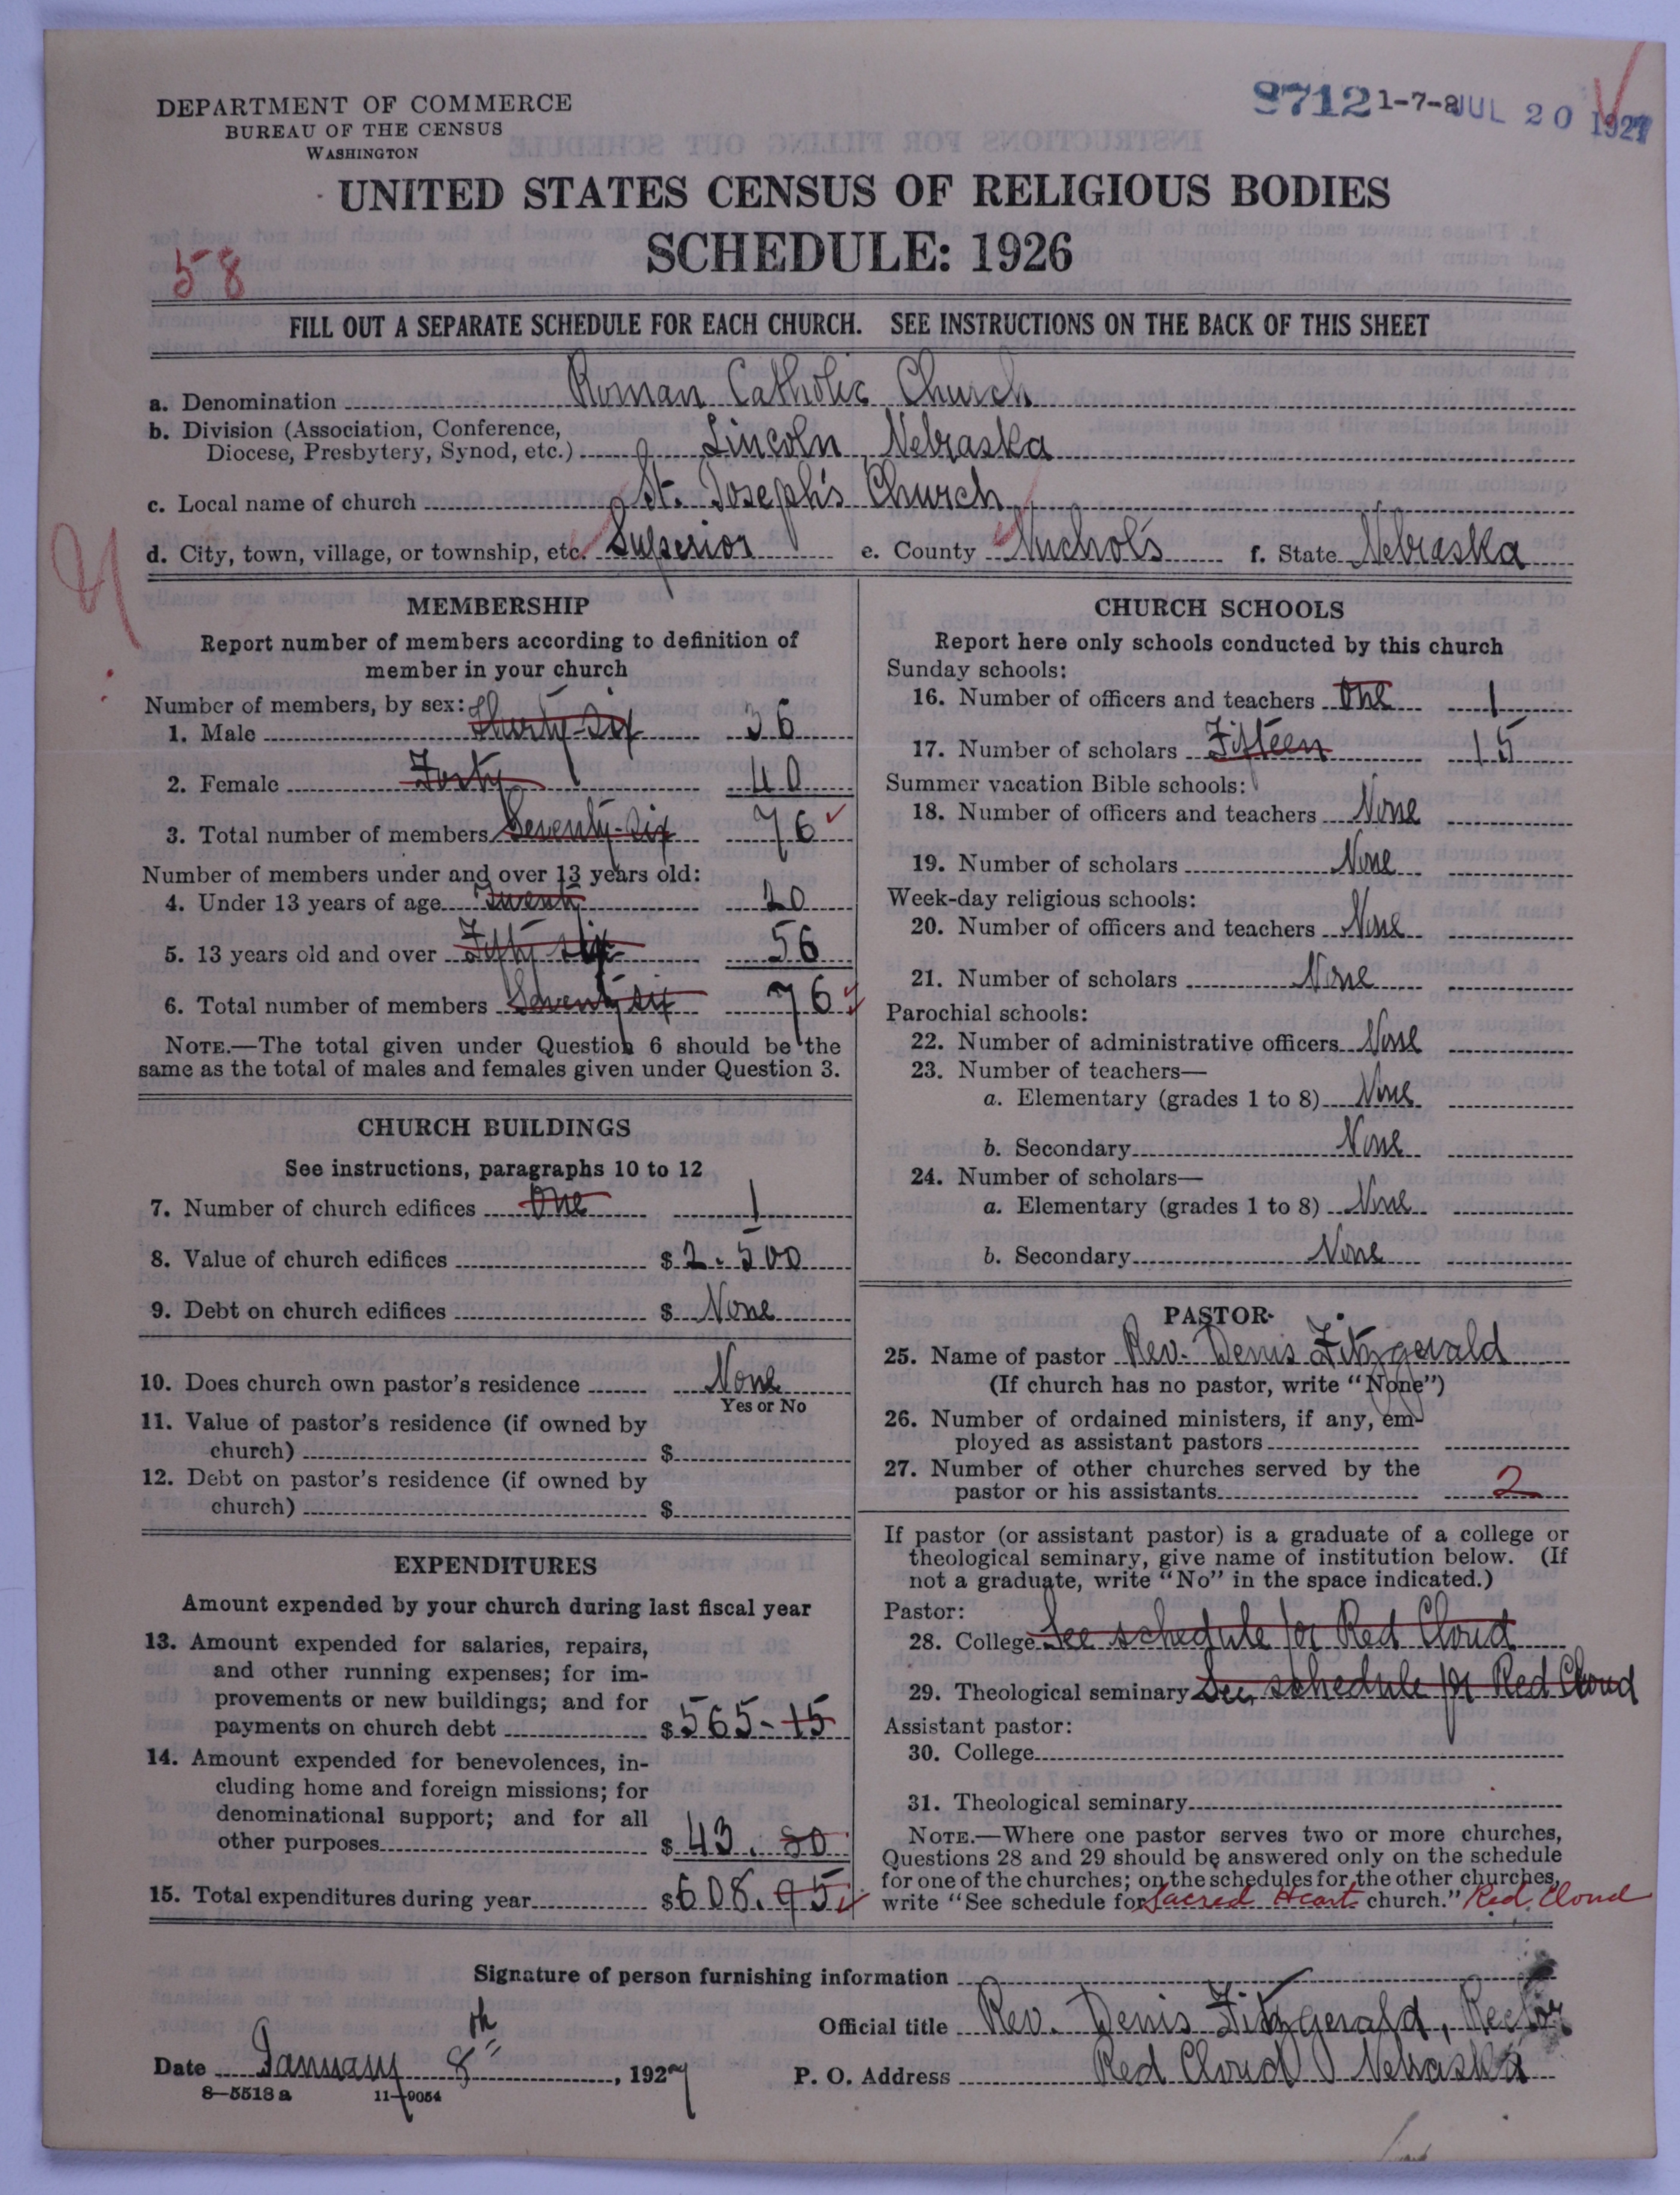 DEPARTMENT OF COMMERCE
BUREAU OF THE CENSUS
WASHINGTON
8712 1-7-8 JUL 20 1927
UNITED STATES CENSUS OF RELIGIOUS BODIES
SCHEDULE: 1926
58
FILL OUT A SEPARATE SCHEDULE FOR EACH CHURCH. SEE INSTRUCTIONS ON THE BACK OF THIS SHEET
a. Denomination Roman Catholic Church
b. Division (Association, Conference,
Diocese, Presbytery, Synod, etc.) Lincoln, Nebraska
c. Local name of church St. Joseph's Church
d. City, town, village, or township, etc. Superior e. County Nuchol's f. State Nebraska
MEMBERSHIP
Report number of members according to definition of
member in your church
Number of members, by sex:
1. Male Thirty-Six 36
2. Female Forty 40
3. Total number of members Seventy-six 76
Number of members under and over 13 years old:
4. Under 13 years of age Twenty 20
5. 13 years old and over Fifty six 56
6. Total number of members Seventy six 76
NOTE.—The total given under Question 6 should be the
same as the total of males and females given under Question 3.
CHURCH BUILDINGS
See instructions, paragraphs 10 to 12
7. Number of church edifices One 1
8. Value of church edifices $ 2.500
9. Debt on church edifices $ None
10. Does church own pastor's residence None
Yes or No
11. Value of pastor's residence (if owned by
church) $
12. Debt on pastor's residence (if owned by
church) $
EXPENDITURES
Amount expended by your church during last fiscal year
13. Amount expended for salaries, repairs,
and other running expenses; for im-
provements or new buildings; and for
payments on church debt $ 565-15
14. Amount expended for benevolences, in-
cluding home and foreign missions; for
denominational support; and for all
other purposes $ 43.80
15. Total expenditures during year $ 608.95
CHURCH SCHOOLS
Report here only schools conducted by this church
Sunday schools:
16. Number of officers and teachers One 1
17. Number of scholars Fifteen 15
Summer vacation Bible schools:
18. Number of officers and teachers None
19. Number of scholars None
Week-day religious schools:
20. Number of officers and teachers None
21. Number of scholars None
Parochial schools:
22. Number of administrative officers None
23. Number of teachers—
a. Elementary (grades 1 to 8) None
b. Secondary None
24. Number of scholars—
a. Elementary (grades 1 to 8) None
b. Secondary None
PASTOR
25. Name of pastor Rev. Denis Fitzgerald
(If church has no pastor, write "None")
26. Number of ordained ministers, if any, em-
ployed as assistant pastors
27. Number of other churches served by the
pastor or his assistants 2
If pastor (or assistant pastor) is a graduate of a college or
theological seminary, give name of institution below. (If
not a graduate, write "No" in the space indicated.)
Pastor:
28. College See schedule for Red Cloud
29. Theological seminary See schedule for Red Cloud
Assistant pastor:
30. College
31. Theological seminary
NOTE.—Where one pastor serves two or more churches,
Questions 28 and 29 should be answered only on the schedule
for one of the churches; on the schedules for the other churches,
write "See schedule for Sacred Heart church." Red Cloud
Signature of person furnishing information
Official title Rev. Denis Fitzgerald, Rector
Date January 8th, 1927 P. O. Address Red Cloud Nebraska
8—5518a 11—9054